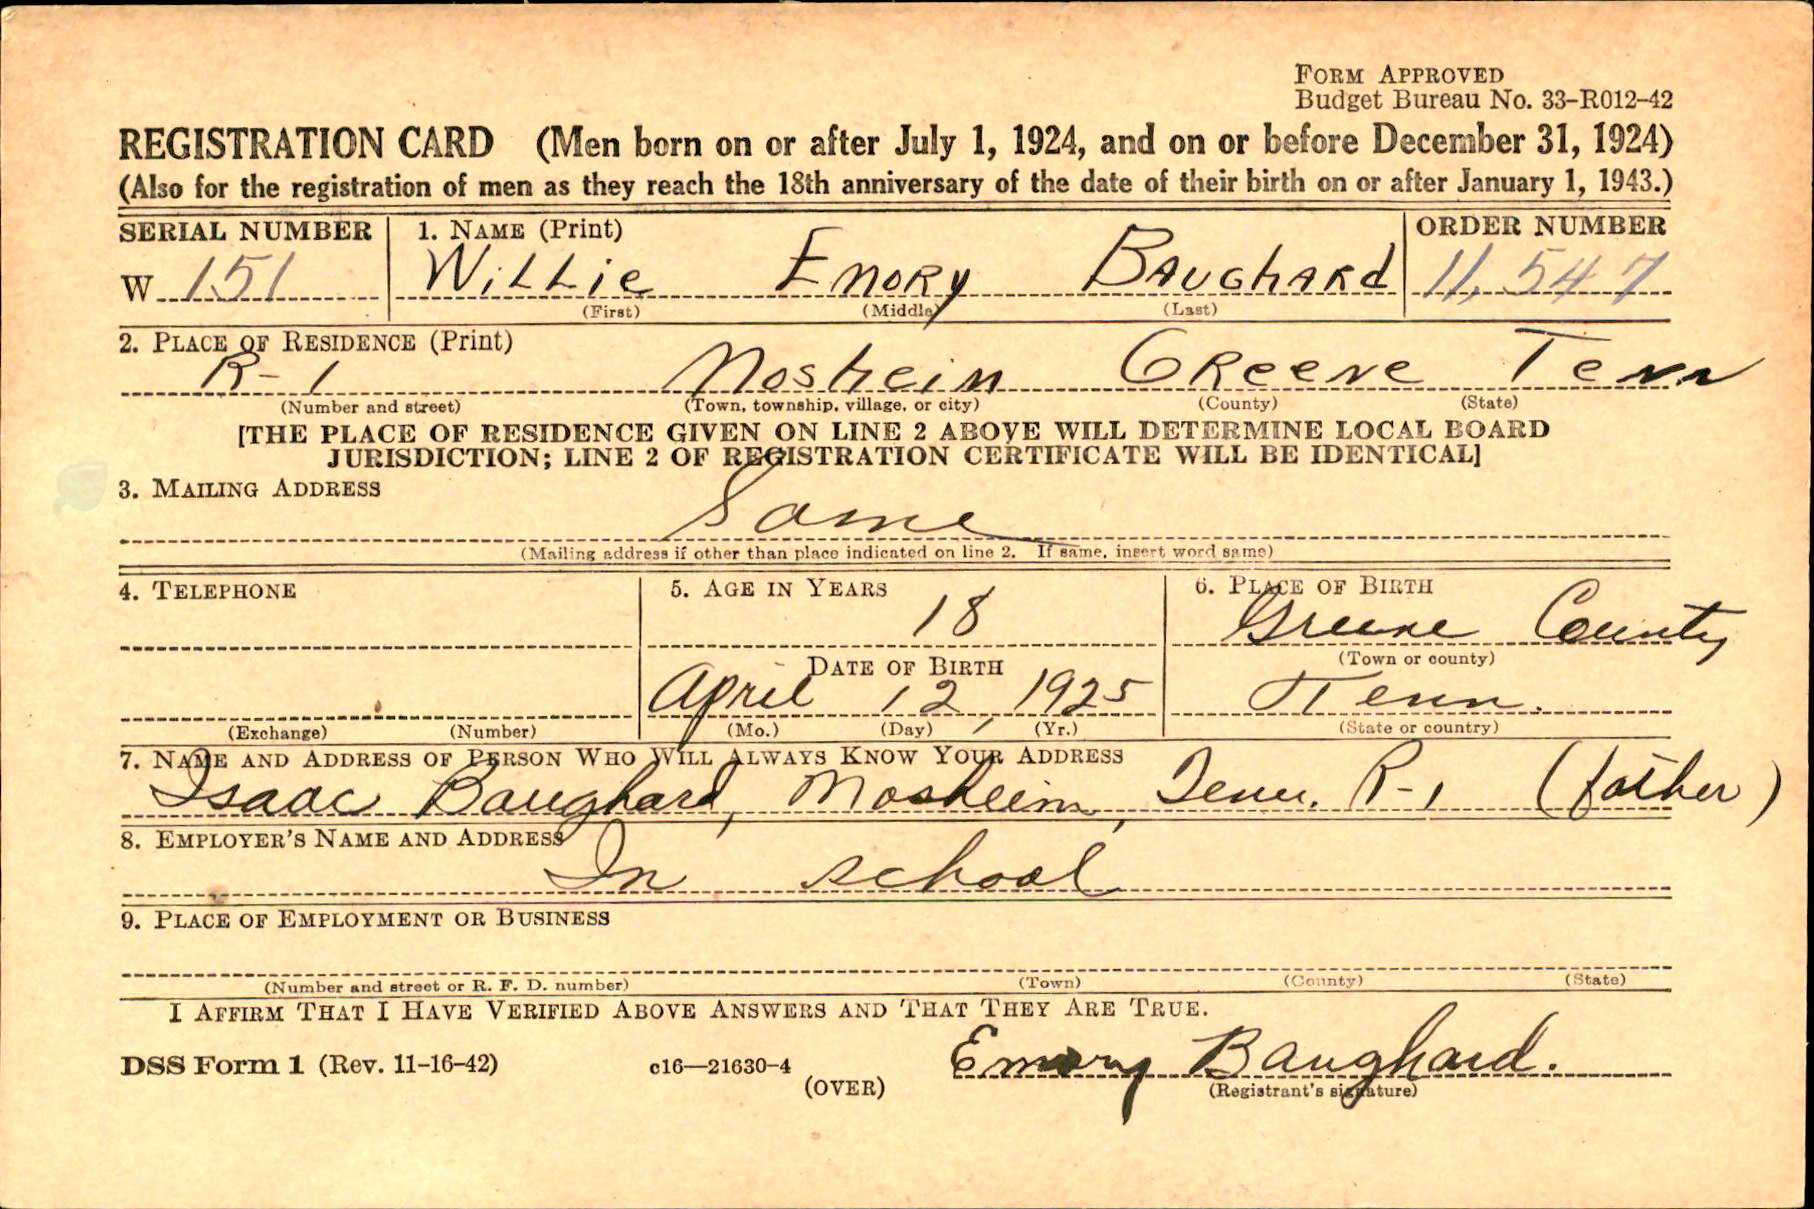 FORM APPROVED
Budget Bureau No. 33–R012–42
REGISTRATION CARD (Men born on or after July 1, 1924, and on or before December 31, 1924)
(Also for the registration of men as they reach the 18th anniversary of the date of their birth on or after January 1, 1943.)
SERIAL NUMBER 1. NAME (Print) ORDER NUMBER
W 151 Willie Emory Baughard 11,547
(First) (Middle) (Last)
2. PLACE OF RESIDENCE (Print)
R-1 Moshein Greene Tenn
(Number and street) (Town, township, village, or city) (County) (State)
[THE PLACE OF RESIDENCE GIVEN ON LINE 2 ABOVE WILL DETERMINE LOCAL BOARD
JURISDICTION; LINE 2 OF REGISTRATION CERTIFICATE WILL BE IDENTICAL]
3. MAILING ADDRESS
Same
(Mailing address if other than place indicated on line 2. If same, insert word same)
4. TELEPHONE 5. AGE IN YEARS 6. PLACE OF BIRTH
18 Greene County
DATE OF BIRTH (Town or county)
April 12, 1925 Tenn.
(Exchange) (Number) (Mo.) (Day) (Yr.) (State or country)
7. NAME AND ADDRESS OF PERSON WHO WILL ALWAYS KNOW YOUR ADDRESS
Isaac Baughard, Mosheim, Tenn. R-1 (father)
8. EMPLOYER'S NAME AND ADDRESS
In school
9. PLACE OF EMPLOYMENT OR BUSINESS
(Number and street or R. F. D. number) (Town) (County) (State)
I AFFIRM THAT I HAVE VERIFIED ABOVE ANSWERS AND THAT THEY ARE TRUE.
DSS Form 1 (Rev. 11-16-42) c16—21630-4 Emory Baughard.
(OVER) (Registrant's signature)